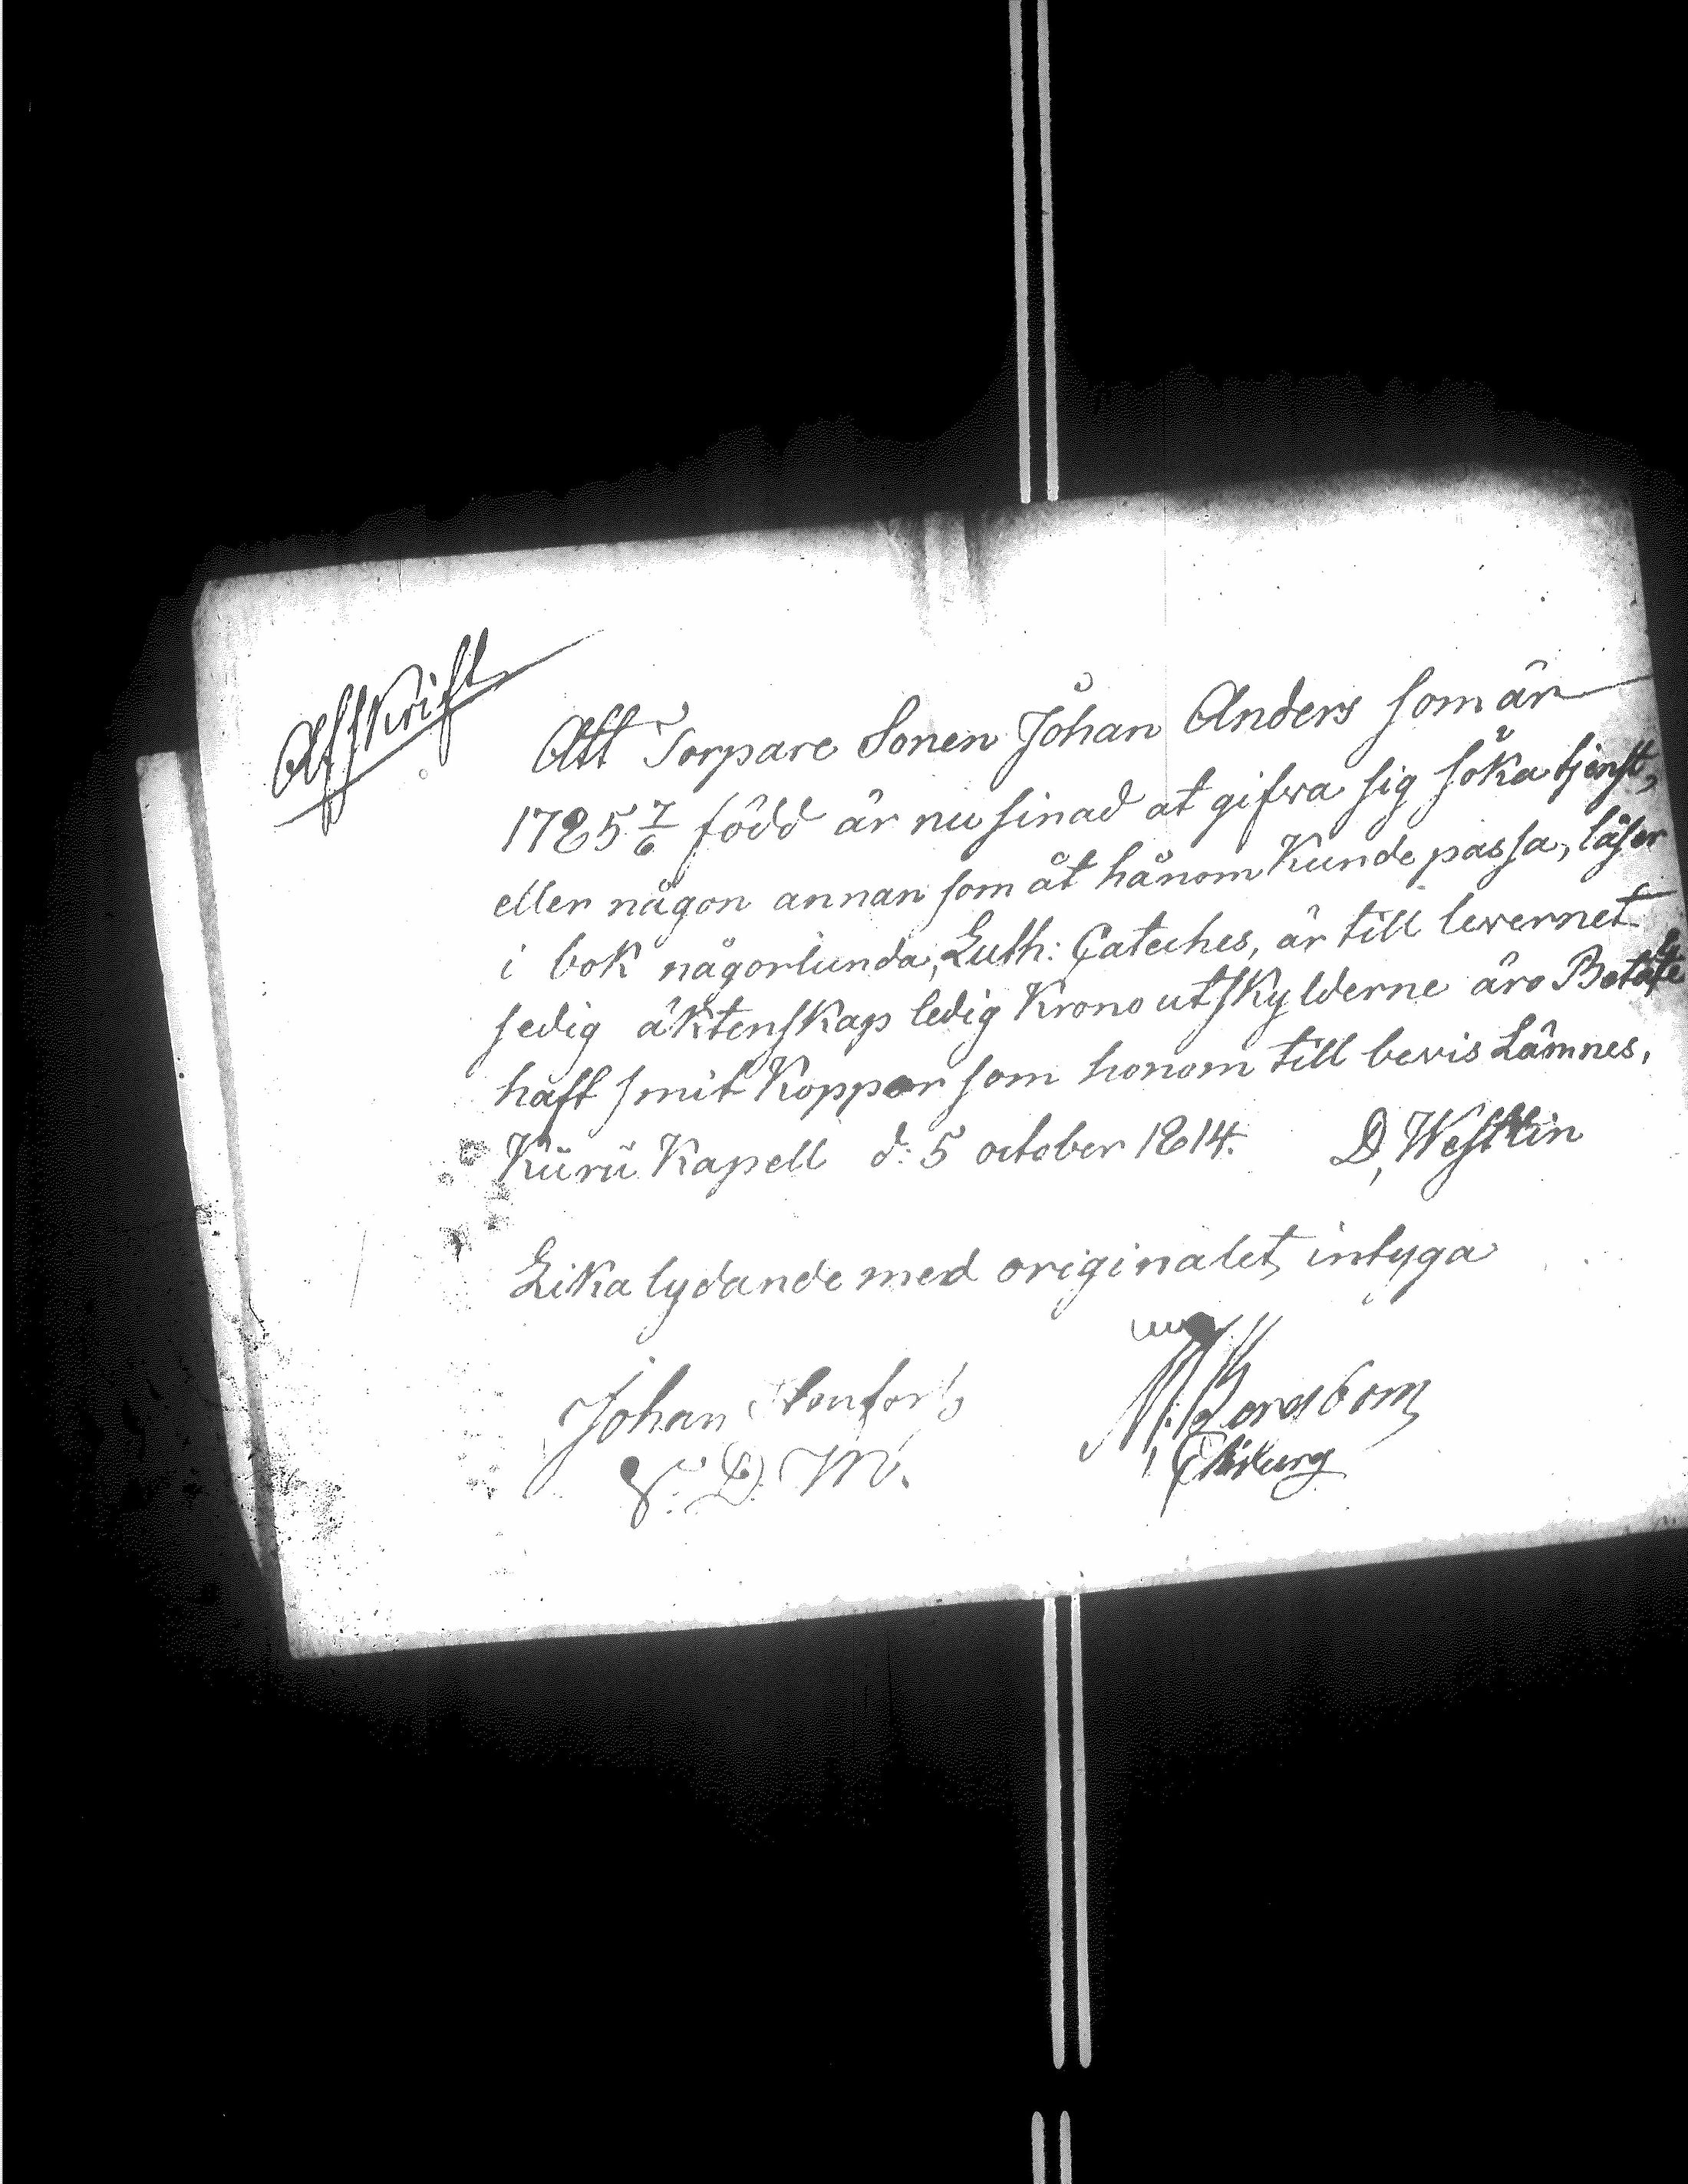 Afskrift
Att Torpare Sonen Johan Anders som är
1785 7/6 född är nu sinad at gifwa sig söka tjenst,
eller någon annan som åt hånom Kunde passa, läser
i bok någorlunda, Luth: Cateches, är till levernet
sedig äktenskap ledig Krono utskylderne äro Betalte
haft smit Koppor som honom till bevis Lämnes,
Kuru Kapell d: 5 october 1814. D, Westlin
Lika lydande med originalet, intyga
Johan
V. D. M.